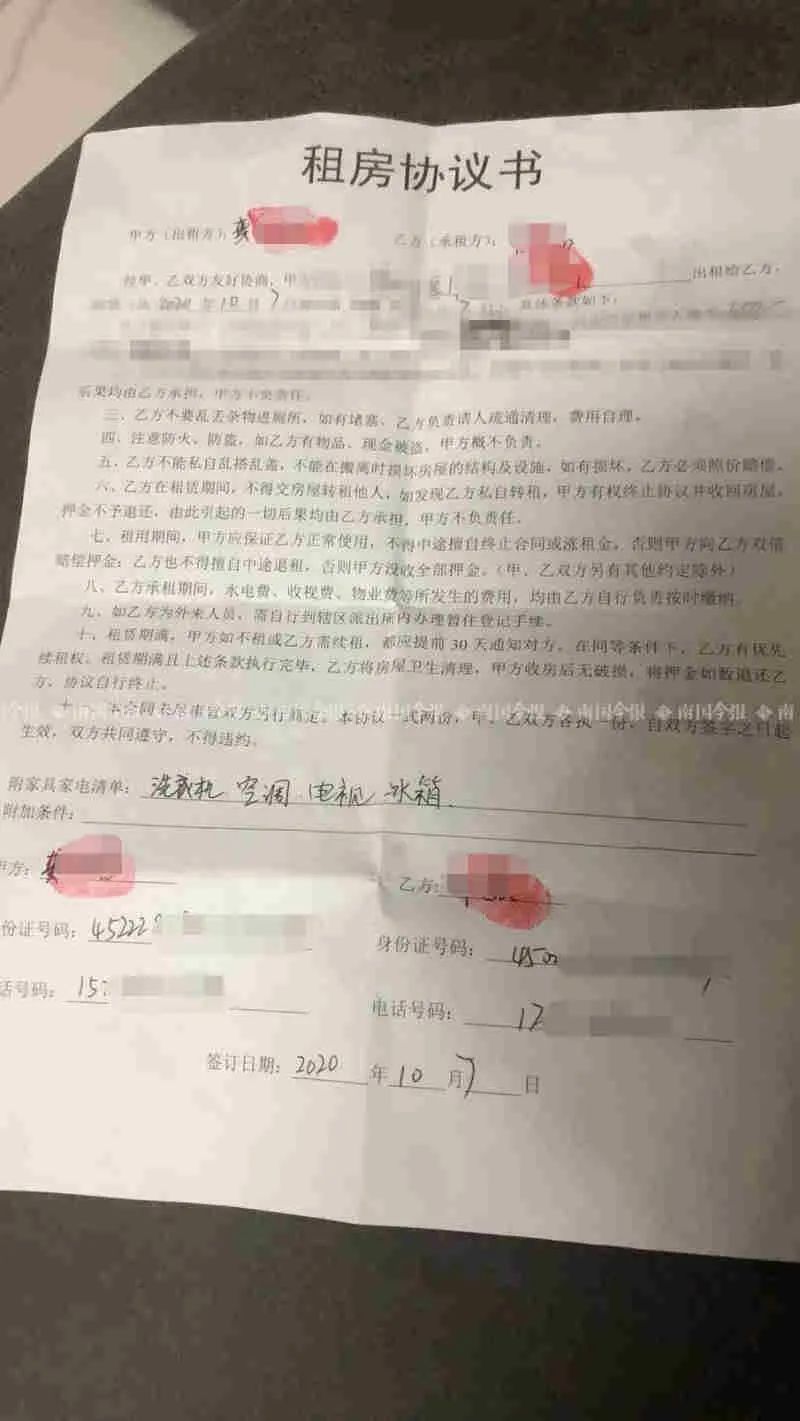 租房协议书
甲方（出租方）：龚
乙方（承租方）：
经甲、乙双方友好协商，甲方 出租给乙方，
2020 年 10 月 7 具体条款如下：
后果均由乙方承担，甲方不负责任。
三、乙方不要乱丢杂物进厕所，如有堵塞、乙方负责请人疏通清理，费用自理。
四、注意防火、防盗，如乙方有物品、现金被盗，甲方概不负责。
五、乙方不能私自乱搭乱盖，不能在搬离时损坏房屋的结构及设施，如有损坏，乙方必须照价赔偿。
六、乙方在租赁期间，不得交房屋转租他人，如发现乙方私自转租，甲方有权终止协议并收回房屋，
押金不予退还，由此引起的一切后果均由乙方承担，甲方不负责任。
七、租用期间，甲方应保证乙方正常使用，不得中途擅自终止合同或涨租金，否则甲方向乙方双倍
赔偿押金；乙方也不得擅自中途退租，否则甲方没收全部押金。（甲、乙双方另有其他约定除外）
八、乙方承租期间，水电费、收视费、物业费等所发生的费用，均由乙方自行负责按时缴纳。
九、如乙方为外来人员，需自行到辖区派出所内办理暂住登记手续。
十、租赁期满，甲方如不租或乙方需续租，都应提前 30 天通知对方。在同等条件下，乙方有优先
续租权。租赁期满且上述条款执行完毕，乙方将房屋卫生清理，甲方收房后无破损，将押金如数退还乙
方，协议自行终止。
十一、本合同未尽事宜双方另行商定。本协议一式两份，甲、乙双方各执一份，自双方签字之日起
生效，双方共同遵守，不得违约。
南国今报 南国今报 南国今报 南国今报
附家具家电清单：洗衣机 空调 电视 冰箱
附加条件：
甲方：龚
乙方：
份证号码：45222
身份证号码：4500
话号码：15
电话号码：17
签订日期：2020 年 10 月 7 日